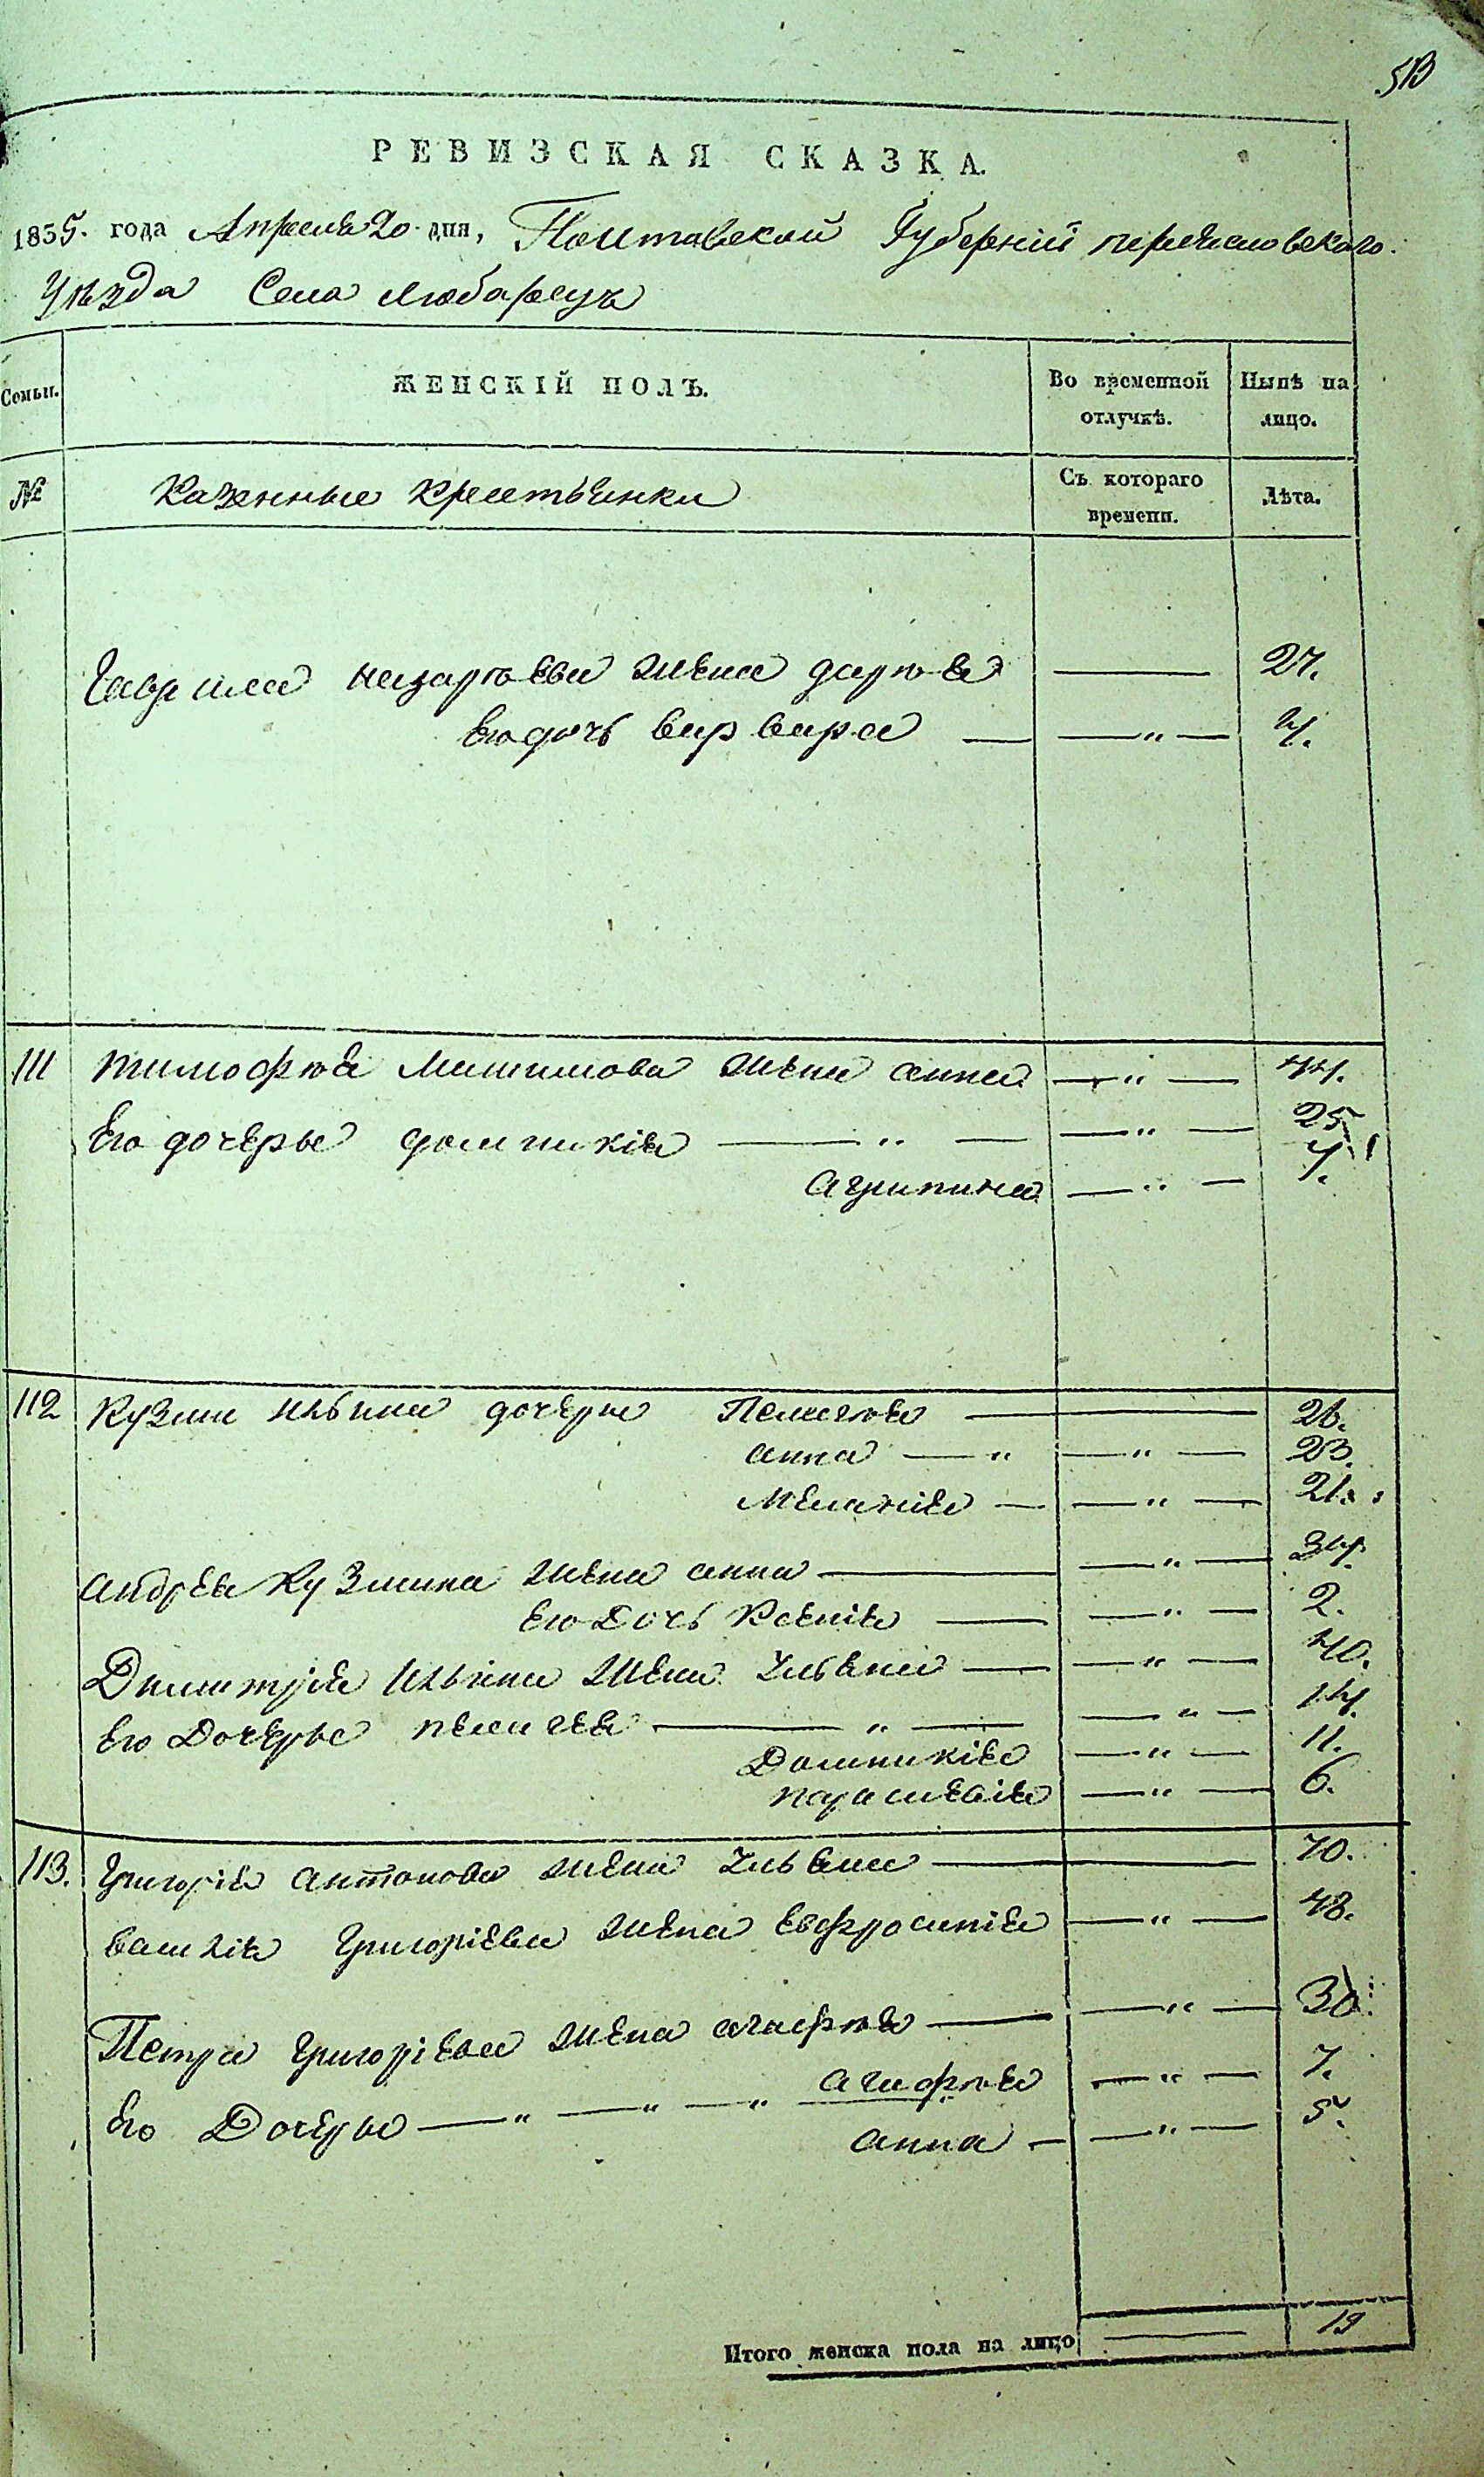 513
РЕВИЗСКАЯ СКАЗКА.
1835. года Апреля 20 дня, Полтавской Губерніи переясловскаго
Уѣзда Села Любарецъ
Семьи. ЖЕНСКІЙ ПОЛЪ. Во временной отлучкѣ. Нынѣ на лицо.
№ Казенные крестьянки Съ котораго времени. Лѣта.
Гаврила назарѣева жена дарѣя — 24.
Его дочь варвара — — " — 4.
111 тимофѣя Максимова жена анна — " — 44.
Его дочеръе домникія — " — — " — 25
Агрипина — " — 4.
112 Кузмы ильина дочеры Пелагѣя — 26.
анна — " — " — 23.
Меланія — — " — 21.
андрея Кузмина жена анна — — " — 34.
Его Дочь Ксенія — — " — 2.
Дмитрія Ильина жена Ульяна — — " — 40.
Его Дочерье пелагея — " — — " — 14.
Домникія — " — 11.
параскевія — " — 6.
113. Григорія антонова жена Ульяна — 70.
василія Григоріева жена Евфросинія — " — 48.
Петра Григоріева жена агафѣя — — " — 30.
агафѣя — " — 7.
Его Дочерье — " — " — "
анна — — " — 5.
Итого женска пола на лицо — 19